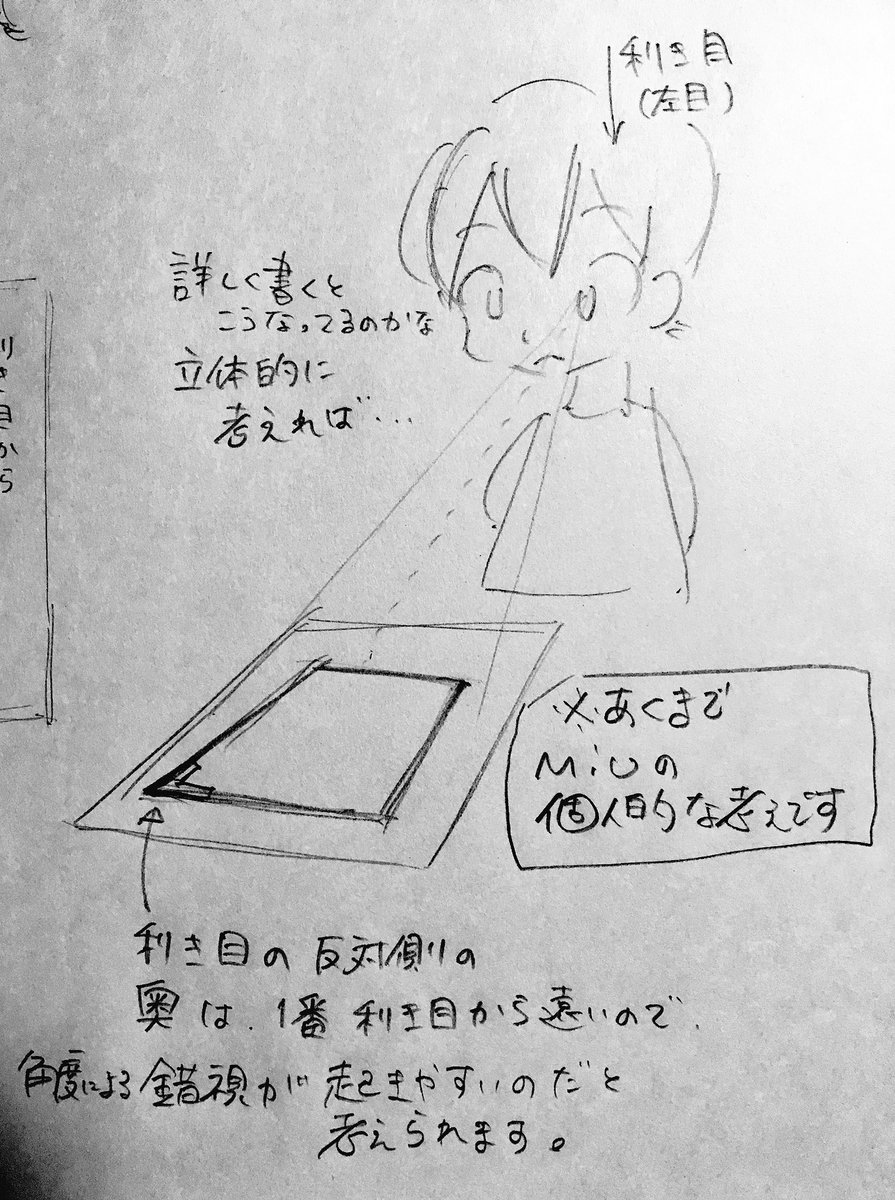 利き目
(左目)
詳しく書くと
こうなってるのかな
立体的に
考えれば…
利き目から
※あくまで
MiUの
個人的な考えです
利き目の反対側の
奥は、1番利き目から遠いので、
角度による錯視が起きやすいのだと
考えられます。